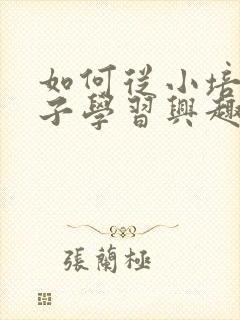 如何從小培
子學習興趣
張蘭極